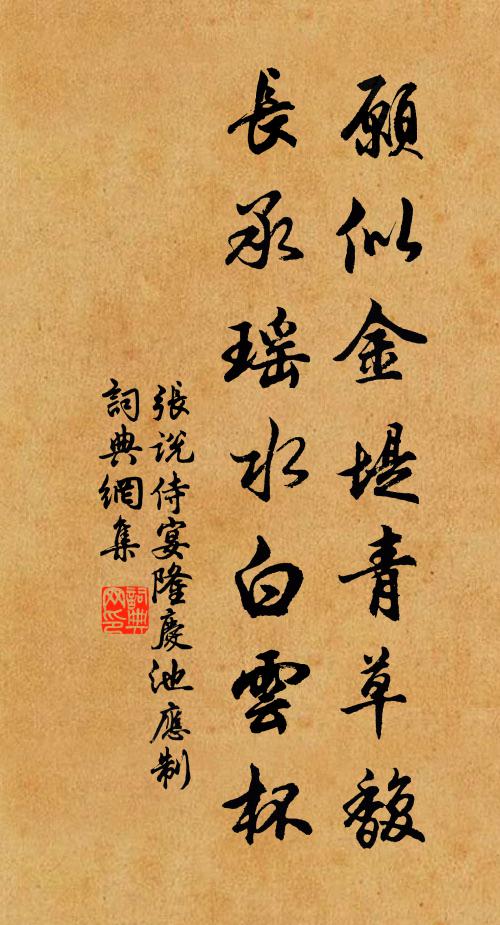 願似金堤青草馥
長承瑶水白雲杯
張说侍宴隆慶池應制
詞典網集
詞典网印